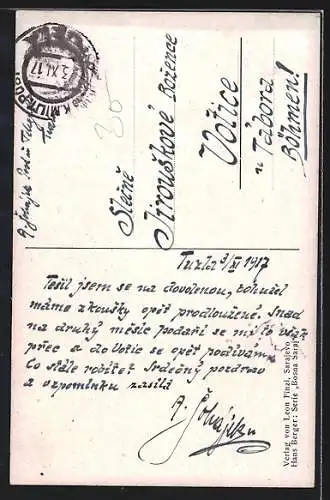 K.u.K. MILIT. POST
3.XI.17
Slečně
Jirouškové Božence
Votice
u Tábora
Böhmen!
Tuzla 3/XI 1917
Těšil jsem se na dovolenou, bohužel
máme zkoušky opět prodloužené. Snad
na druhý měsíc podaří se mi to však
přec a do Votic se opět podívám.
Co stále robíte? Srdečný pozdrav
a vzpomínku zasílá
Verlag von Leon Finzi, Sarajevo
Hans Berger: Serie „Bosna Saraj